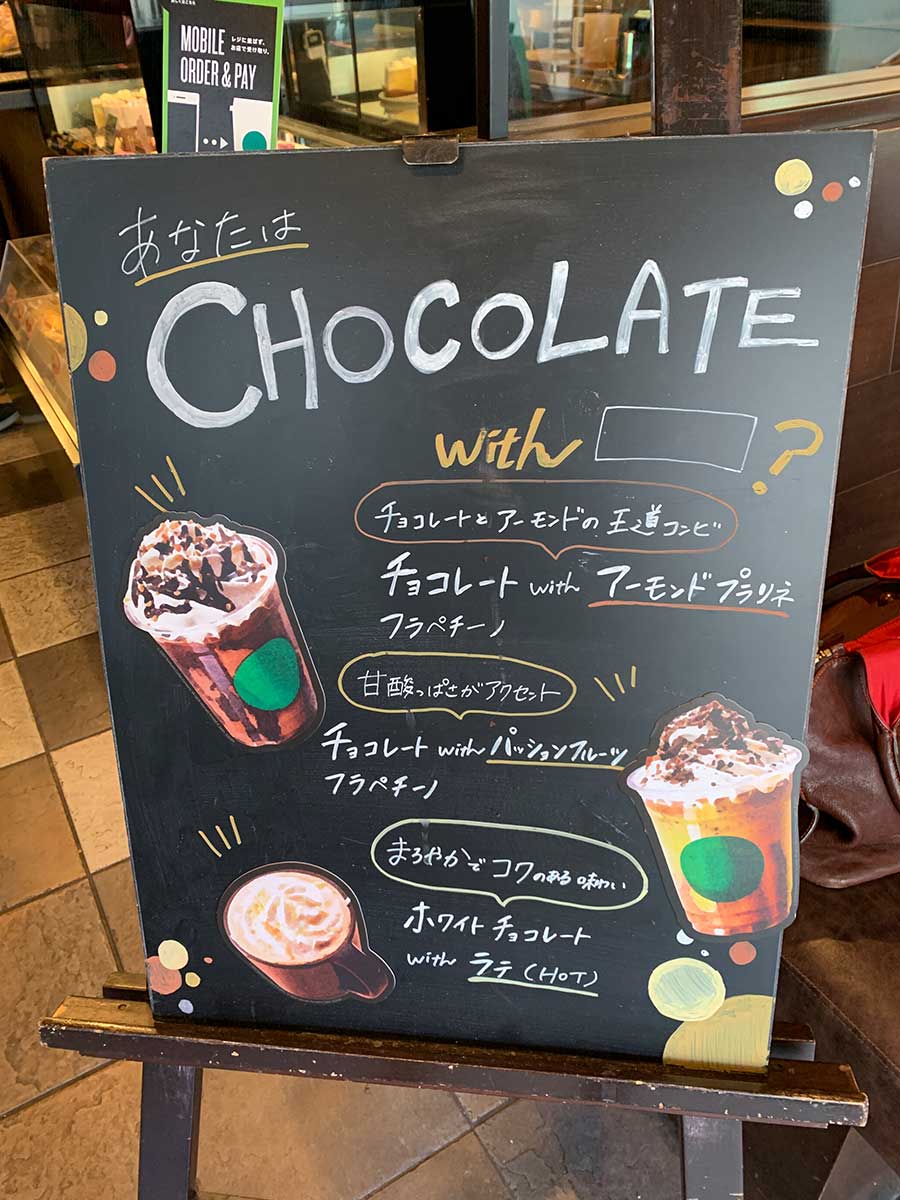 詳しくはこちら
MOBILE
ORDER & PAY
レジに並ばず、
お店で受け取り。
あなたは
CHOCOLATE
with ?
チョコレートとアーモンドの王道コンビ
チョコレート with アーモンドプラリネ
フラペチーノ
甘酸っぱさがアクセント
チョコレート with パッションフルーツ
フラペチーノ
まろやかでコクのある味わい
ホワイトチョコレート
with ラテ(HOT)